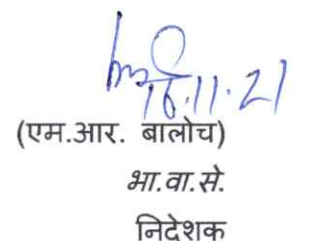 16.11.21
(एम.आर. बालोच)
भा.वा.से.
निदेशक